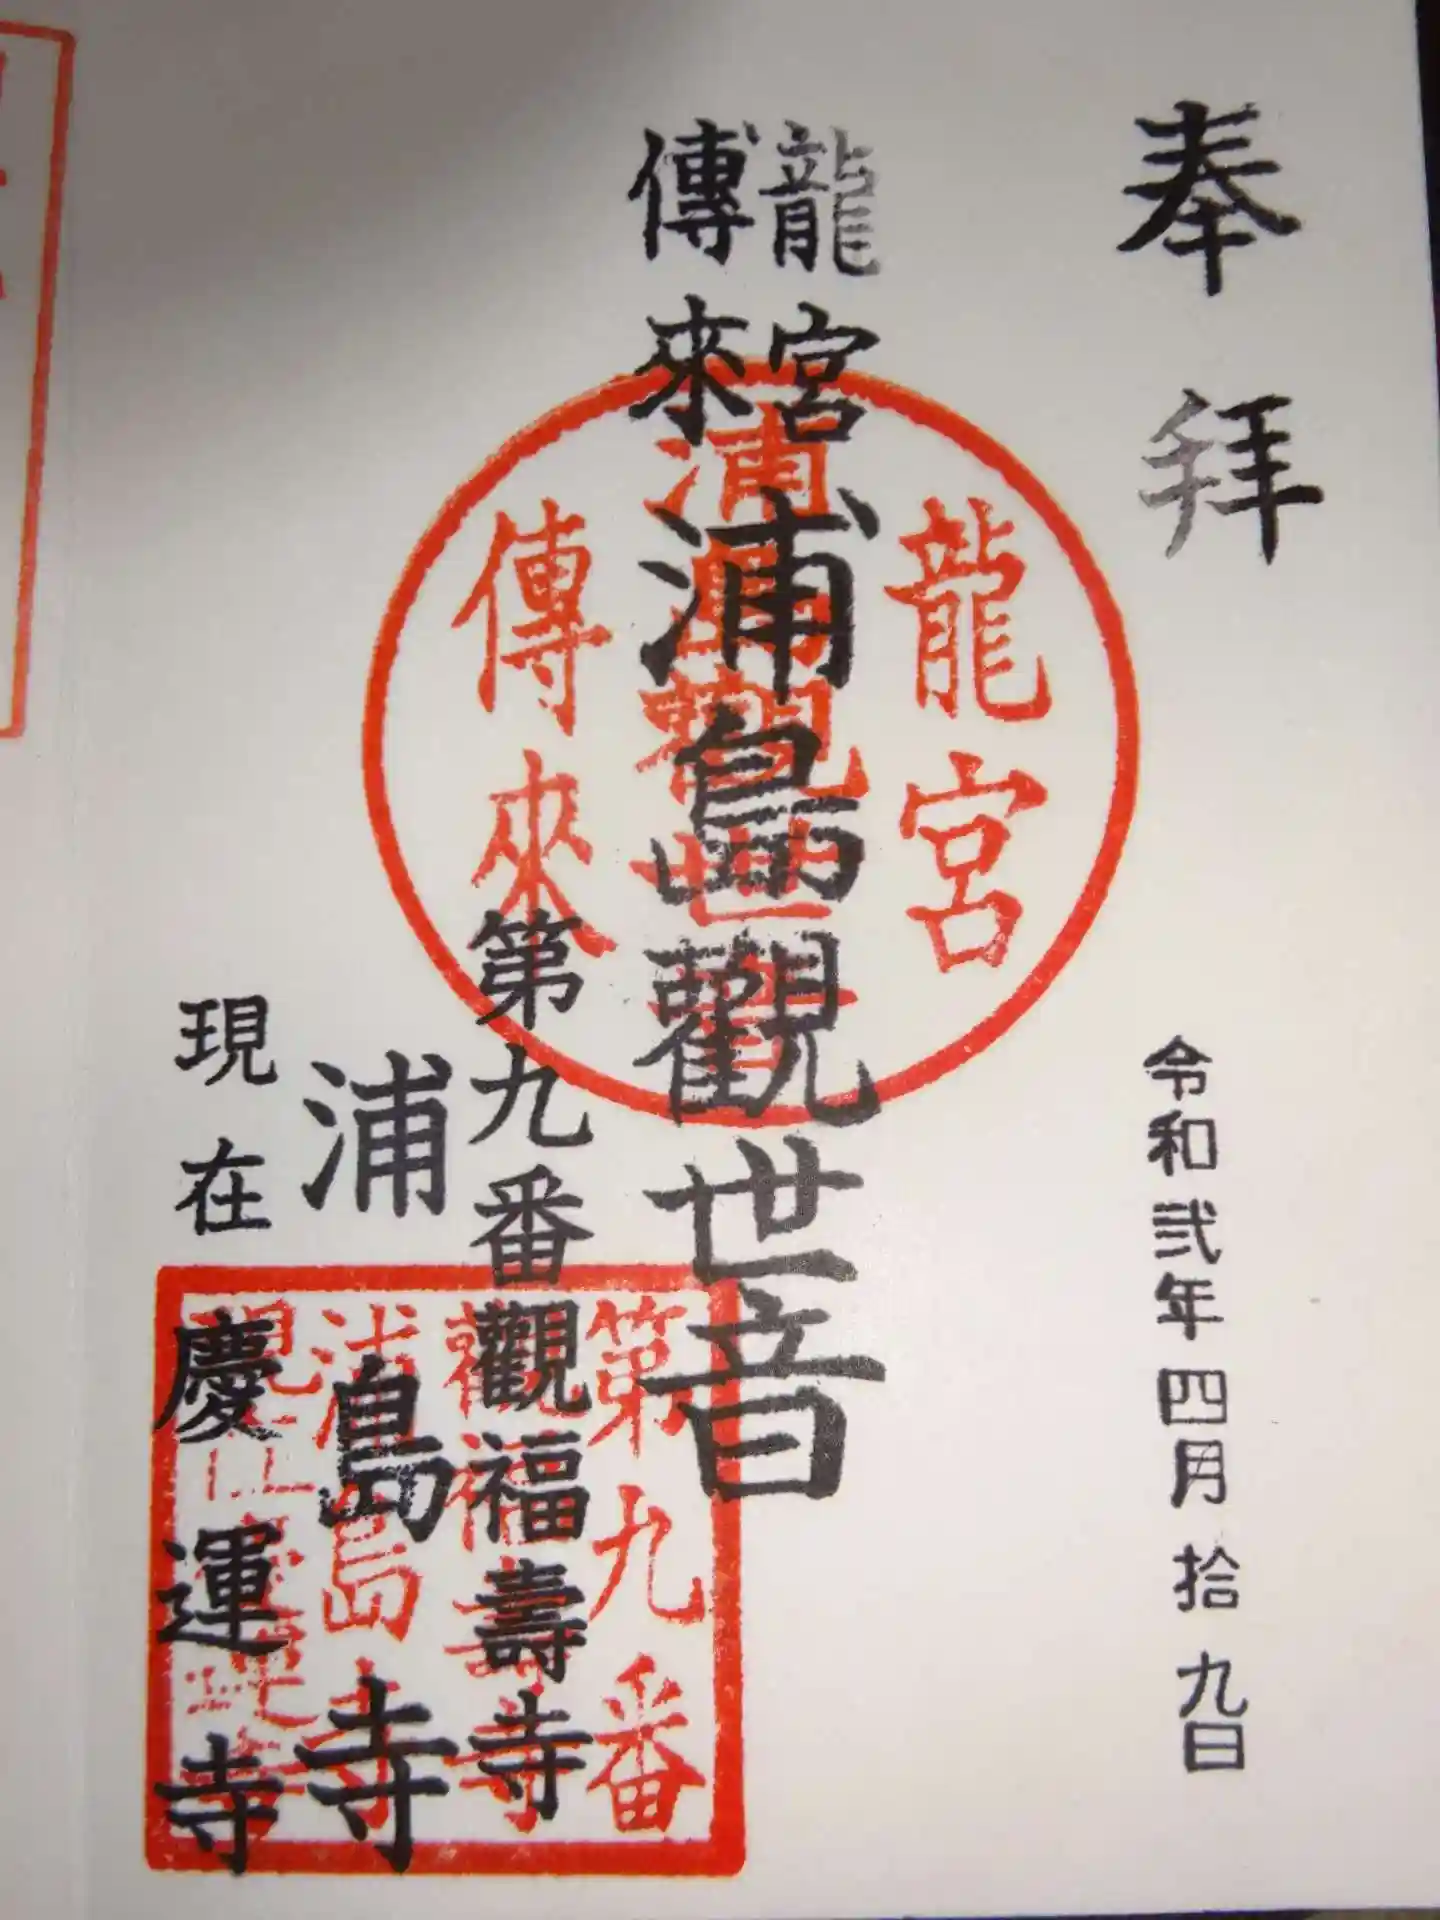 奉拜
令和弐年四月拾九日
龍宮
傳來
浦島觀世音
第九番觀福壽寺
浦島寺
現在慶運寺
龍宮
浦島觀世音
傳來
第九番
觀福壽寺
浦島寺
現在慶運寺